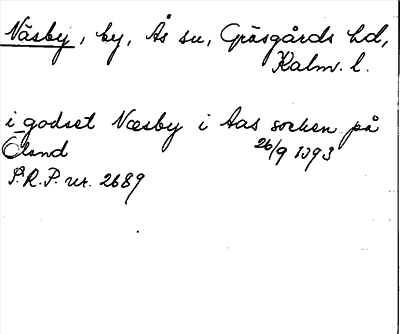 Näsby, by, Ås sn, Gräsgårds hd,
Kalm. l.
i godset Næsby i Aas socken på
Öland 26/9 1393
S.R.P. nr. 2689